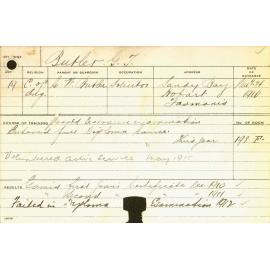 Butler G. T.
AGE RELIGION PARENT OR GUARDIAN OCCUPATION ADDRESS DATE OF ENTRANCE
19 C. of Eng. C. W. Butler Solicitor Sandy Bay
Hobart 1910
Tasmania
COURSE OF TRAINING
Entered full Diploma Course
This year 198
Volunteered active service May 1915
RESULTS Gained First Years Certificate Dec 1910
" Second " " 1911
Failed in Diploma Examination 1912